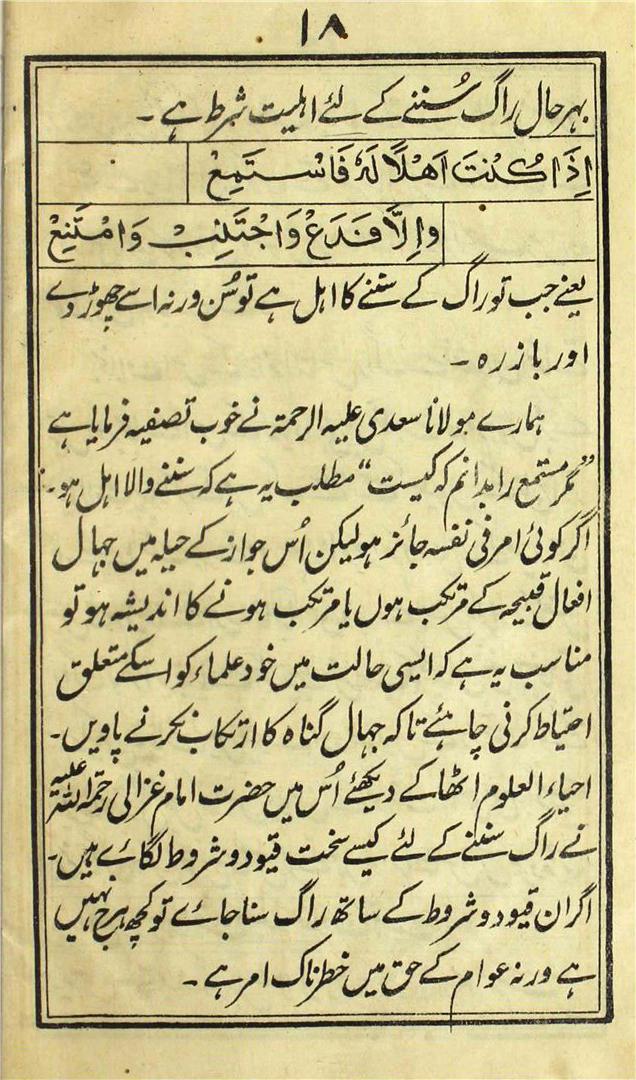 ۱۸
بہر حال راگ سُننے کے لئے اہلیت شرط ہے ۔
اِذَا كُنْتَ اَهْلًا لَهٗ فَاسْتَمِعْ
وَاِلَّا فَدَعْ وَاجْتَنِبْ وَامْتَنِعْ
یعنے جب تو راگ کے سننے کا اہل ہے تو سُن ورنہ اسے چھوڑ دے
اور باز رہ ۔
ہمارے مولانا سعدی علیہ الرحمۃ نے خوب تصفیہ فرمایا ہے
”مگر مستمع را بدانم کہ کیست“ مطلب یہ ہے کہ سننے والا اہل ہو ۔
اگر کوئی امر فی نفسہ جائز ہو لیکن اُس جواز کے حیلہ میں جہال
افعال قبیحہ کے مرتکب ہوں یا مرتکب ہونے کا اندیشہ ہو تو
مناسب یہ ہے کہ ایسی حالت میں خود علماء کو اسکے متعلق
احتیاط کرنی چاہئے تاکہ جہال گناہ کا ارتکاب نکرنے پاویں ۔
احیاء العلوم اٹھا کے دیکھئے اُس میں حضرت امام غزالی رحمۃ اللہ علیہ
نے راگ سننے کے لئے کیسے سخت قیود و شروط لگائے ہیں ۔
اگر ان قیود و شروط کے ساتھ راگ سنا جائے تو کچھ ہرج نہیں
ہے ورنہ عوام کے حق میں خطرناک امر ہے ۔